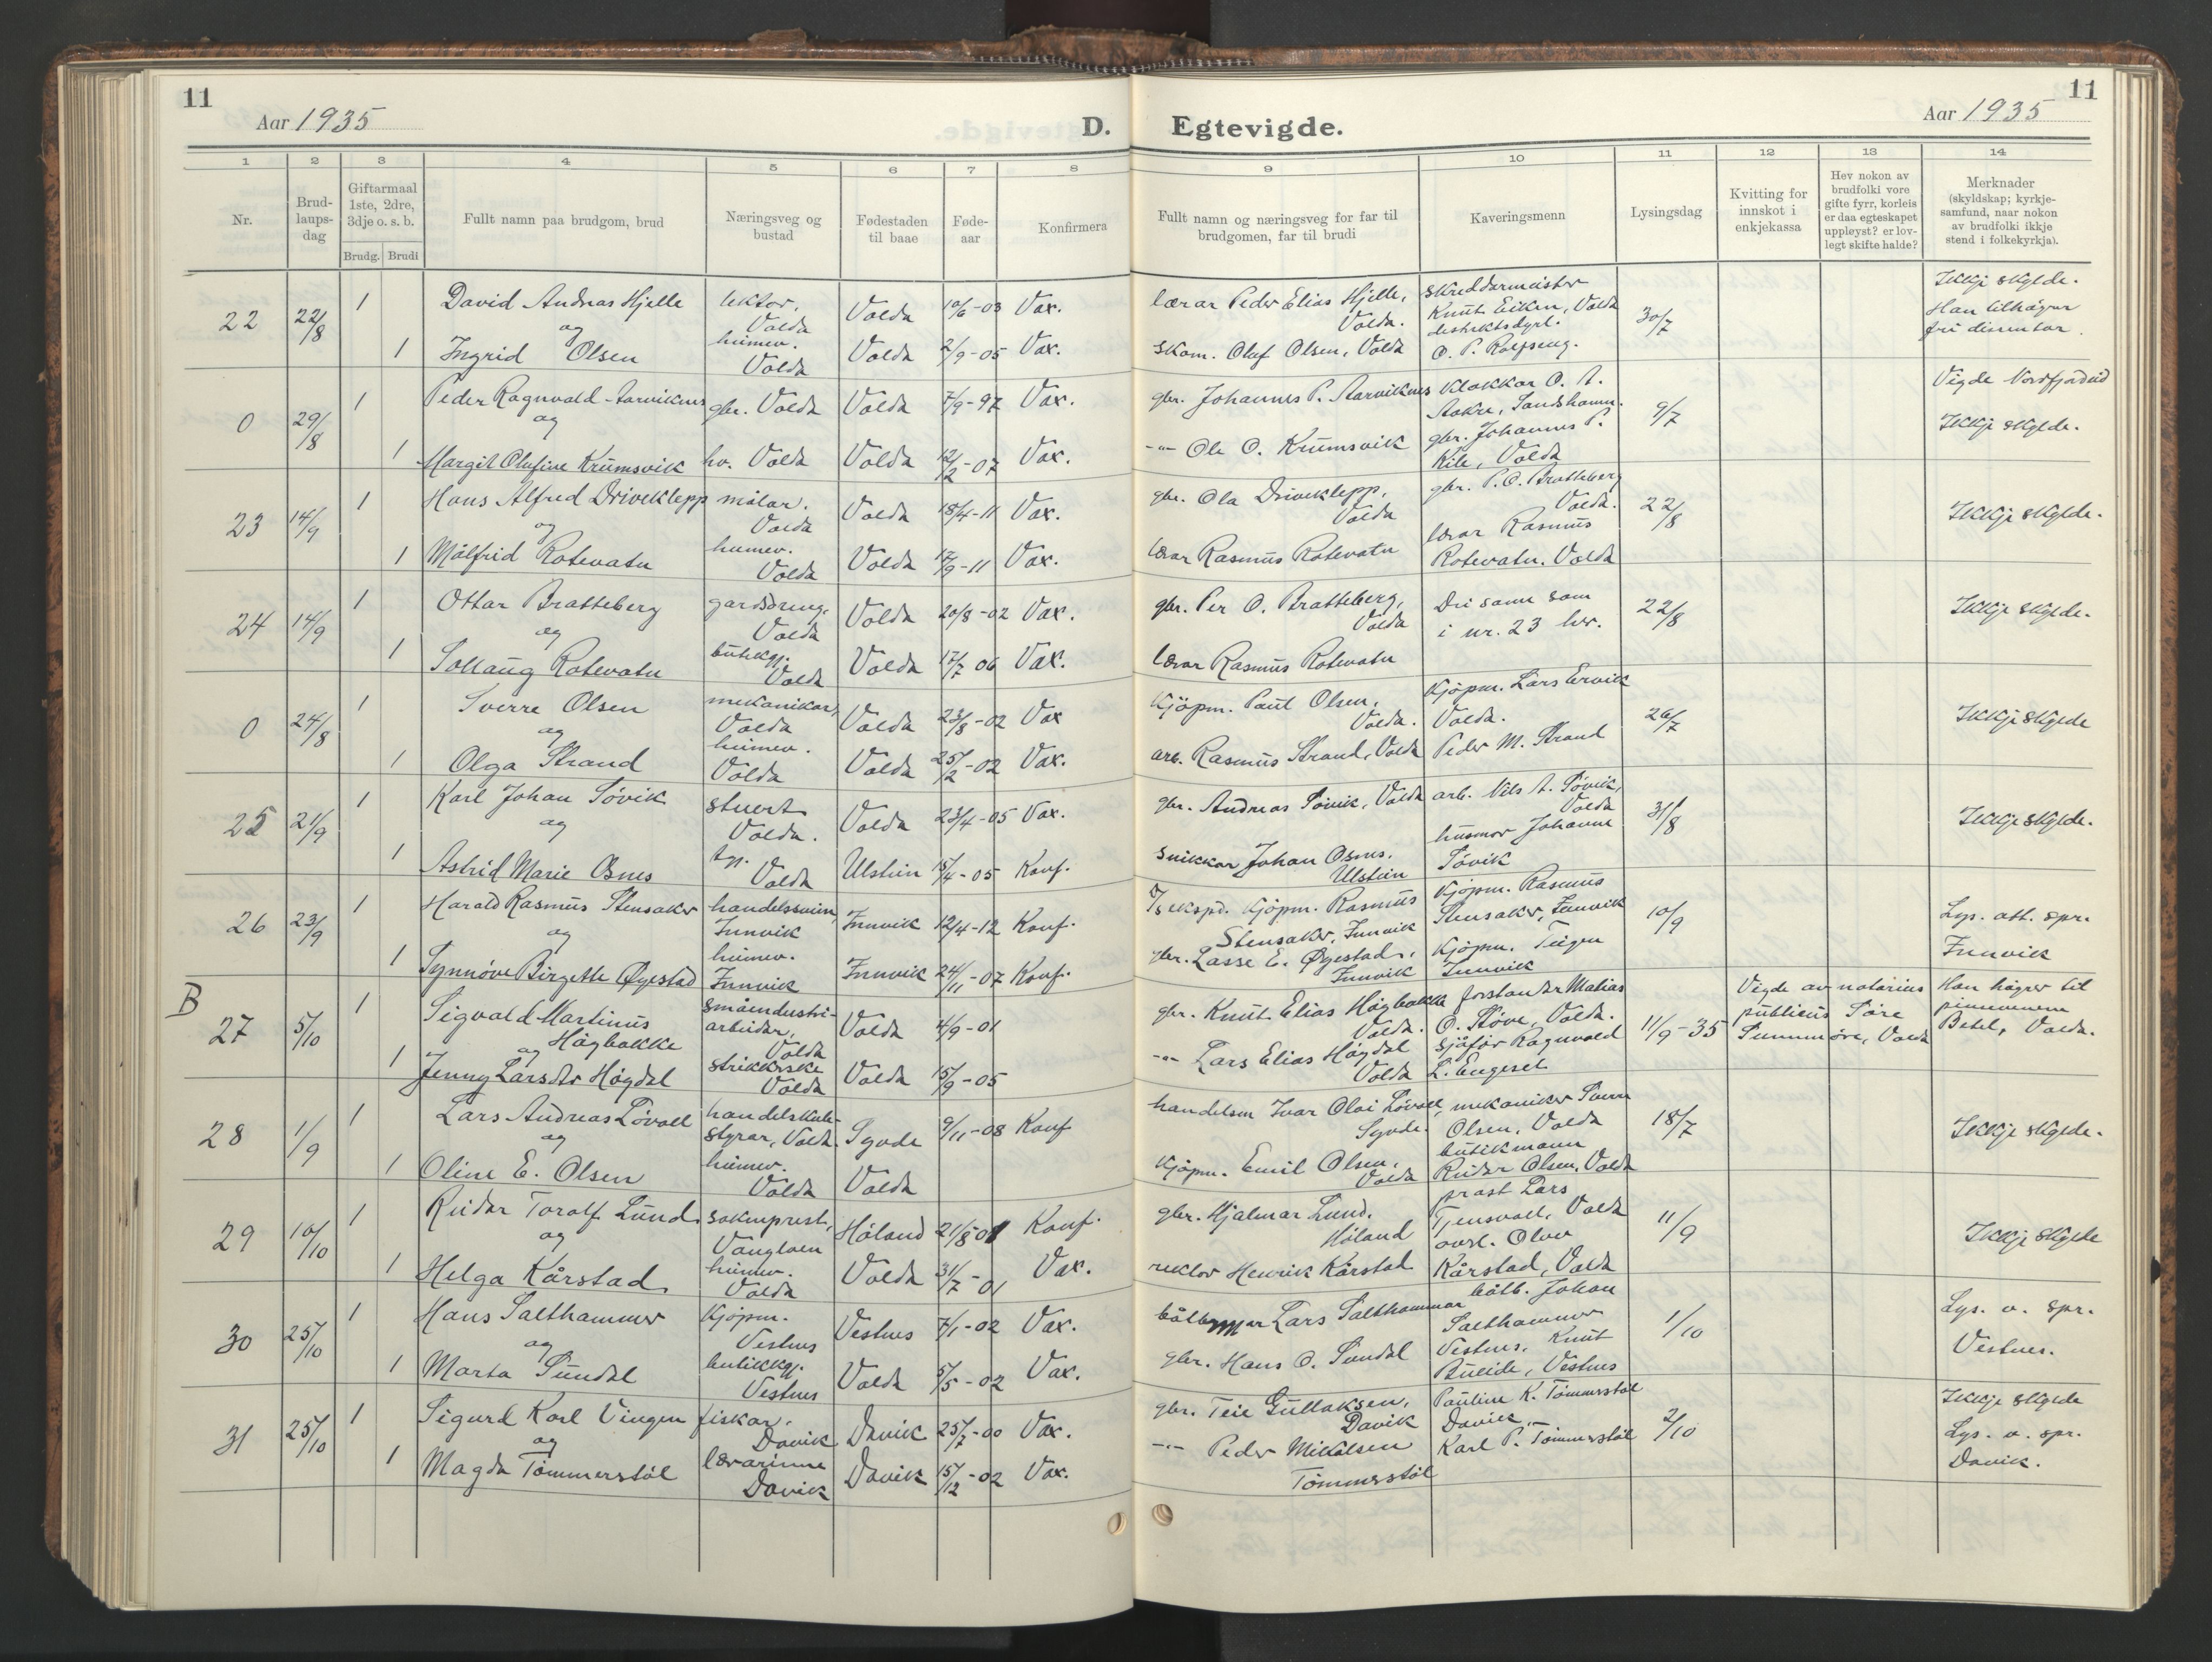 11
Aar 1935
D.
1 2 3 4 5 6 7 8
Nr.
Brud-
laups-
dag
Giftarmaal
1ste, 2dre,
3dje o. s. b.
Brudg. Brudi
Fullt namn paa brudgom, brud
Næringsveg og
bustad
Fødestaden
til baae
Føde-
aar
Konfirmera
22 22/8 1 David Andreas Hjelle lektor, Volda Volda 10/6-03 Vax.
og
1 Ingrid Olsen heimev. Volda Volda 2/9-05 Vax.
0 29/8 1 Peder Ragnvald Aarviknes gbr. Volda Volda 7/9-97 Vax.
og
1 Margit Olufine Krumsvik hv. Volda Volda 12/2-07 Vax.
23 14/9 1 Hans Alfred Driveklepp målar. Volda Volda 18/4-11 Vax.
og
1 Målfrid Rotevatn heimev. Volda Volda 17/9-11 Vax.
24 14/9 1 Ottar Bratteberg gardsdreng, Volda Volda 20/8-02 Vax.
og
1 Sollaug Rotevatn butekgj. Volda Volda 17/7 06 Vax.
0 24/8 1 Sverre Olsen mekanikar, Volda Volda 23/8-02 Vax
og
1 Olga Strand heimev. Volda Volda 25/2-02 Vax.
25 21/9 1 Karl Johan Søvik stuert Volda. Volda 23/4-05 Vax.
og
1 Astrid Marie Osnes Volda Ulstein 15/4-05 Konf.
26 23/9 1 Harald Rasmus Stensaker handelssvein, Innvik Innvik 12/4-12 Konf.
og
1 Synnøve Birgette Øyestad heimev. Innvik Innvik 24/11-07 Konf.
B
27 5/10 1 Sigvald Martinus Høgbakke småindustri-arbeidar, Volda Volda 4/9-01
og
1 Jenny Larsdtr Høgdal strikkerske Volda Volda 15/9-05
28 1/9 1 Lars Andreas Løvoll handelskule-styrar, Volda Syvde 9/11-08 Konf
og
1 Oline E. Olsen heimev. Volda Volda
29 10/10 1 Reidar Toralf Lund soknprest, Høland 21/8-01 Konf.
og
1 Helga Kårstad heimev. Volda Volda 31/7-01 Vax.
30 25/10 1 Hans Salthammer kjøpm. Vestnes Vestnes 7/1-02 Vax.
og
1 Marta Sundal butikkgj. Vestnes Volda 5/5-02 Vax.
31 25/10 1 Sigurd Karl Vingen fiskar. Davik Davik 25/7-00 Vax.
og
1 Magda Tømmerstøl lærarinne Davik Davik 15/12-02 Vax.
11
Egtevigde.
Aar 1935
9 10 11 12 13 14
Fullt namn og næringsveg for far til
brudgomen, far til brudi
Kaveringsmenn
Lysingsdag
Kvitting for
innskot i
enkjekassa
Hev nokon av
brudfolki vore
gifte fyrr, korleis
er daa egteskapet
uppløyst? er lov-
legt skifte halde?
Merknader
(skyldskap; kyrkje-
samfund, naar nokon
av brudfolki ikkje
stend i folkekyrkja).
lærar Peder Elias Hjelle, Volda. skreddarmeister Knut Eiken, Volda 30/7 Ikkje skylde.
Han tilhøyrer
skom. Olaf Olsen, Volda O. P.
gbr. Johannes P. Aarviknes Klokkar O. A. Aakre, Sandshamn. 9/7 Vigde Nordfjordeid
Ikkje skylde.
-"- Ole O. Krumsvik gbr. Johannes P. Kile, Volda
gbr. Ola Driveklepp, Volda gbr. P. O. Bratteberg Volda. 22/8 Ikkje skylde.
lærar Rasmus Rotevatn lærar Rasmus Rotevatn. Volda
gbr. Per O. Bratteberg, Volda Dei same som i nr. 23 her. 22/8 Ikkje skylde.
lærar Rasmus Rotevatn
Kjøpm. Paul Olsen, Volda. Kjøpm. Lars Ervik Volda. 26/7 Ikkje skylde
arb. Rasmus Strand, Volda Peder M. Strand
gbr. Andreas Søvik, Volda arb. Nils A. Søvik, Volda 31/8 Ikkje skylde.
snikkar Johan Osnes, Ulstein husmor Johanne Søvik
ekspd. Kjøpm. Rasmus Stensaker, Innvik Kjøpm. Rasmus Stensaker, Innvik 10/9 Lys. att. spr.
Innvik
gbr. Lasse E. Øyestad, Innvik Kjøpm. Teigen Innvik
gbr. Knut Elias Høgbakke Volda. forstandar Matias O. Støve, Volda. 11/9-35 Vigde av notarius publicus Søre Sunnmøre, Volda Han høyrer til pinsevenene Betel, Volda.
-"- Lars Elias Høgdal Volda sjåfør Ragnvald L. Engeset
handelsm Ivar Olai Løvoll, Syvde. mekanikar Sverre Olsen, Volda 18/7 Ikkje skylde.
Kjøpm. Emil Olsen, Volda butikmann Reidar Olsen, Volda
gbr. Hjalmar Lund. Høland prost Lars Tjensvoll, Volda 11/9 Ikkje skylde
rektor Henrik Kårstad overl. Olav Kårstad, Volda
Lars Salthammer båtb. Johan Salthammer Vestnes. 1/10 Lys. o. spr.
Vestnes.
gbr. Hans O. Sundal Knut Bueide, Vestnes
gbr. Teie Gullaksen, Davik Pauline K. Tømmerstøl Davik, 2/10 Ikkje skylde
Lys. o. spr.
Davik.
-"- Peder Mikalsen Tømmerstøl Karl P. Tømmerstøl